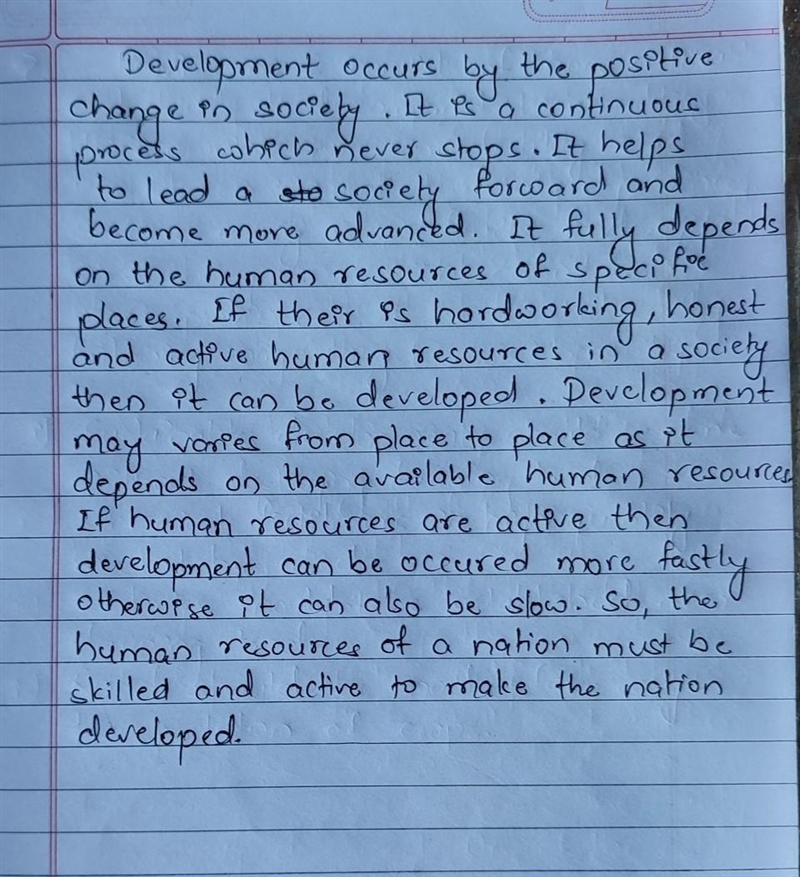 Development occurs by the positive
change in society. It is a continuous
process which never stops. It helps
to lead a sto society forward and
become more advanced. It fully depends
on the human resources of specific
places. If their is hardworking, honest
and active human resources in a society
then it can be developed. Development
may varies from place to place as it
depends on the available human resources
If human resources are active then
development can be occured more fastly
otherwise it can also be slow. So, the
human resources of a nation must be
skilled and active to make the nation
developed.